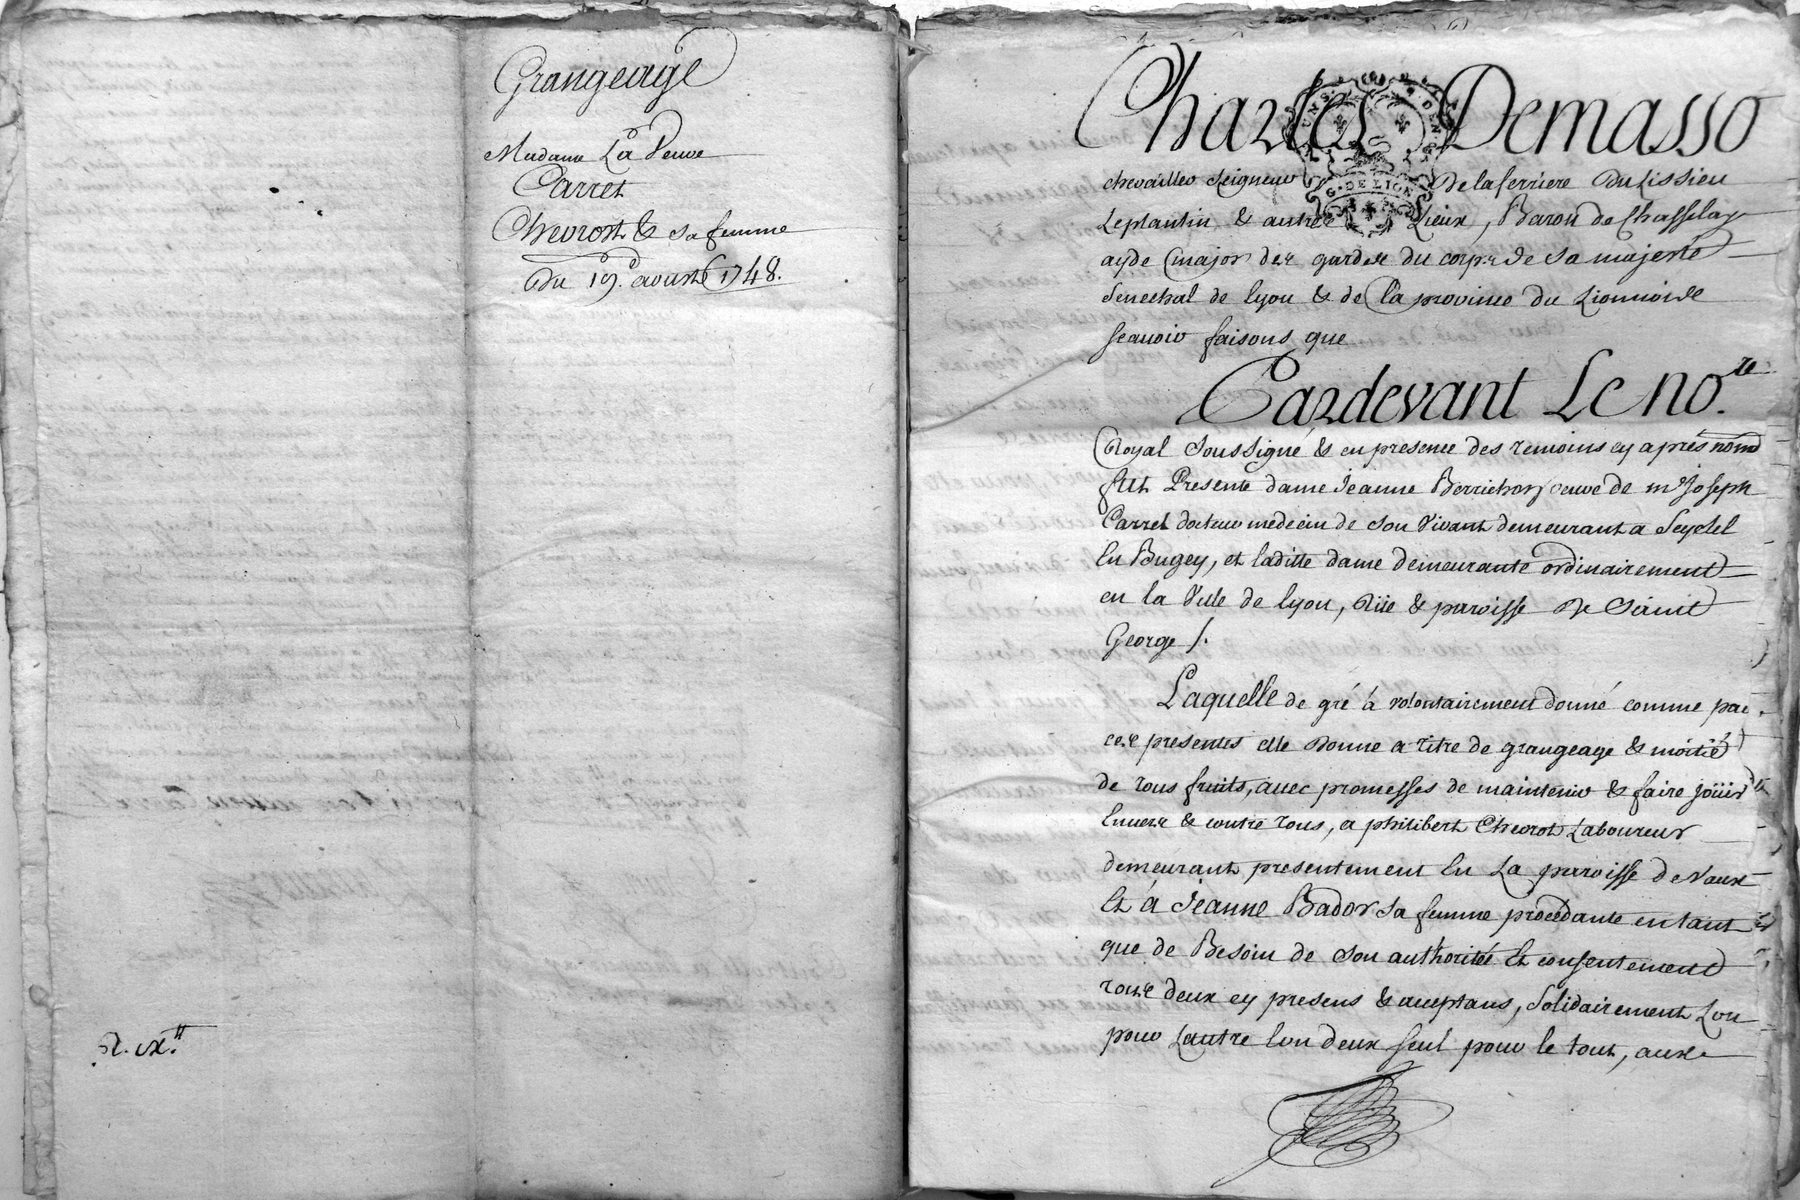 Grangeage
Madame La Veuve
Carret
Chevrot & sa femme
Du 19.e aoust 1748.
Charles Demasso
chevallier seigneur de la ferriere Du Lissieu
Leplantin & autres Lieux, Baron de Chasselay
ayde major des gardes du corps de sa majesté
Senechal de lyon & de la province du Lionnois
scavoir faisons que
Pardevant Le no.re
Royal soussigné & en presence des temoins cy après nomé
fut Presente dame jeanne Berrichon veuve de mr Joseph
Carret docteur medecin de son Vivant demeurant a Seyssel
En Bugey, et laditte dame demeurante ordinairement
en la Ville de lyon, Rüe & paroisse de Saint
George /.
Laquelle de gré à volontairement donné comme par
ces presentes elle Donne a titre de grangeage & moitié
de tous fruits, avec promesses de maintenir & faire joüir
Envers & contre tous, a philibert Chevrot Laboureur
demeurant presentement En La paroisse de Vaux
Et à jeanne Bador sa femme procédante en tant
que de Besoin de son authoritée Et consentement
tous deux cy presens & acceptans, solidairement Lun
pour Lautre lun deux seul pour le tout, aux
G. DE LION